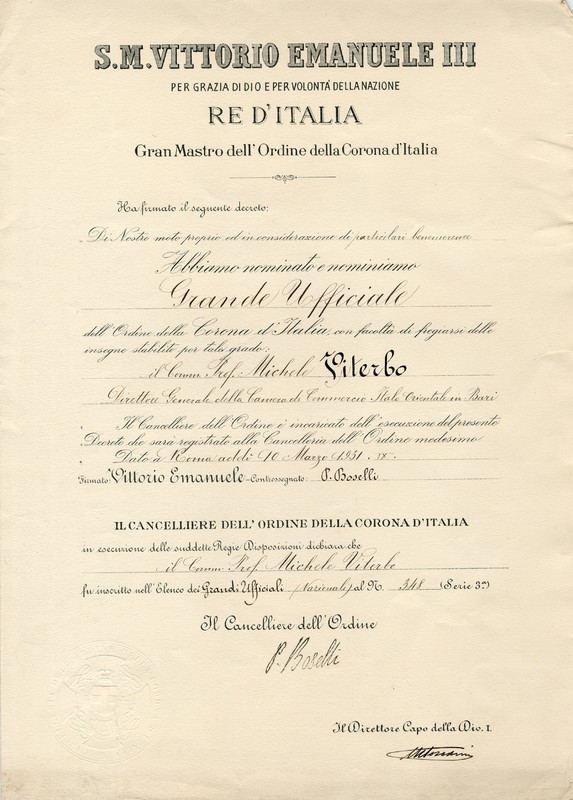 S.M. VITTORIO EMANUELE III
PER GRAZIA DI DIO E PER VOLONTÀ DELLA NAZIONE
RE D'ITALIA
Gran Mastro dell' Ordine della Corona d'Italia
Ha firmato il seguente decreto:
Di Nostro moto proprio ed in considerazione di particolari benemerenze
Abbiamo nominato e nominiamo
Grande Ufficiale
dell' Ordine della Corona d'Italia, con facoltà di fregiarsi delle
insegne stabilite per tale grado:
il Comm. Prof. Michele Viterbo
Direttore Generale della Camera di Commercio Italo Orientale in Bari
Il Cancelliere dell' Ordine è incaricato dell' esecuzione del presente
Decreto che sarà registrato alla Cancelleria dell' Ordine medesimo
Dato a Roma addì 10 Marzo 1931. IX.
Firmato: Vittorio Emanuele - Controssegnato P. Boselli
IL CANCELLIERE DELL' ORDINE DELLA CORONA D'ITALIA
in esecuzione delle suddette Regie Disposizioni dichiara che
il Comm. Prof. Michele Viterbo
fu inscritto nell' Elenco dei Grandi Ufficiali (Nazionali) al N. 348 (Serie 3ª)
Il Cancelliere dell' Ordine
P. Boselli
Il Direttore Capo della Div. I.